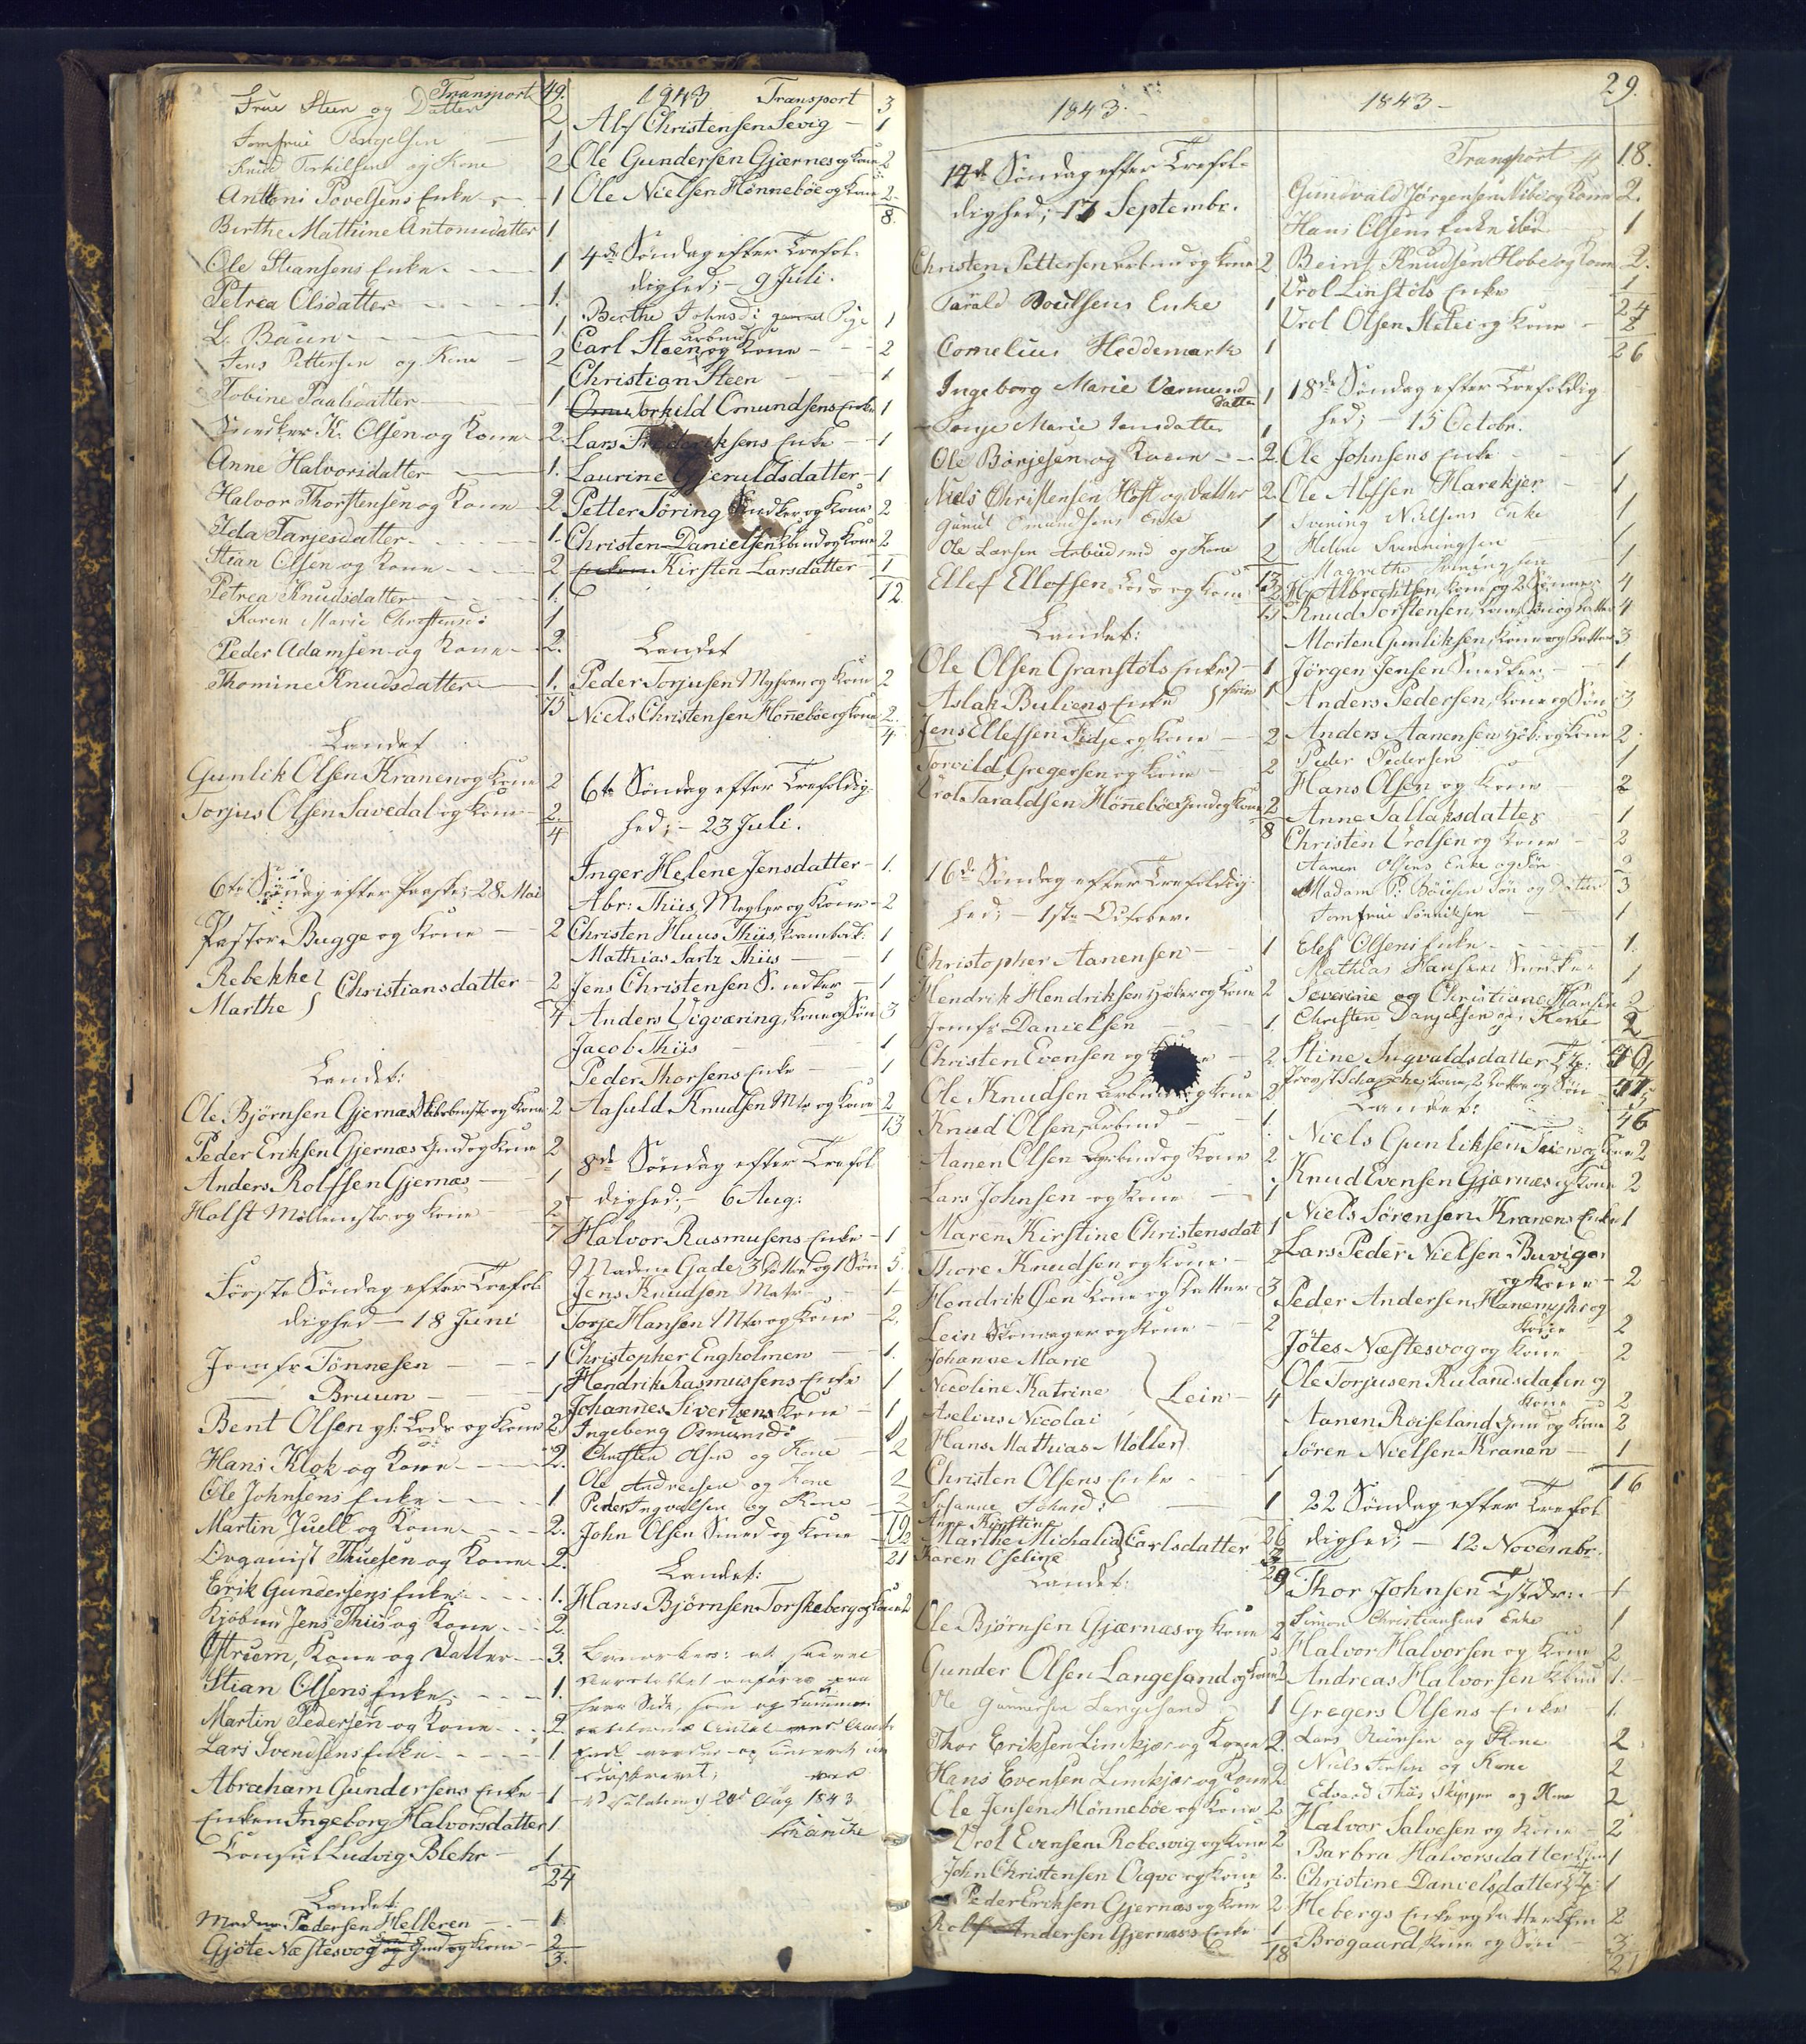 Transport 49.
Frue Steen og Datter 2
Jomfrue Tengelsen 1
Knud Terkilsen og Kone 2
Anttoni Povelsens Enke 1
Birthe Mathine Antonisdatter 1
Ole Stiansens Enke 1
Petrea Olsdatter 1.
L. Baun 1.
Jens Pettersen og Kone 2
Tobine Paulsdatter 1
Snedker K. Olsen og Kone 2.
Anne Halvorsdatter 1.
Halvor Thorstensen og Kone 2
Ida Tarjesdatter 1.
Stian Olsen og Kone 2
Petrea Knudsdatter 1.
Karen Marie Christensd: 1
Peder Adamsen og Kone 2.
Thomine Knudsdatter 1.
75
Landet
Gunlik Olsen Kranen og Kone 2
Torjus Olsen Savedal og Kone 2.
4
6te Søndag efter Paaske; 28 Mai
Pastor Bugge og Kone 2
Rebekke
Marthe } Christiansdatter 2
4
Landet:
Ole Bjørnsen Gjernæs og Kone 2
Peder Eriksen Gjernæs Gmd og Kone 2
Anders Rolfsen Gjernæs 1
Holst Möllemstr og Kone 2
7
Første Søndag efter Trefol-
dighed - 18 Juni
Jomfr Tönnesen 1
— Bruun 1
Bent Olsen gl: Lods og Kone 2
Hans Klok og Kone 2.
Ole Johnsens Enke 1
Martin Juell og Kone 2.
Organist Thuesen og Kone 2.
Erik Gundersens Enke 1.
Kjöbmd Jens Thiis og Kone 2.
Østrüm, Kone og Datter 3.
Stian Olsens Enke 1.
Martin Pedersen og Kone 2.
Lars Svendsens Enke 1.
Abraham Gundersens Enke 1
Enken Ingeborg Halvorsdatter 1.
Consul Ludvig Blehr 1
24
Landet.
Madme Pedersen Helleren 1
Gjöte Næstesvog Gmd og Kone 2
3.
1843 Transport 3
Alf Christensen Sevig 1
Ole Gundersen Gjærnes og Kone 2
Ole Nielsen Hönnebøe og Kone 2.
8.
4de Søndag efter Trefol-
dighed; - 9 Juli.
Birthe Johnsd: Pige 1
Carl Steen Arbmd og Kone 2
Christian Steen 1
Torkild Omundsens Enke 1
Lars Frederiksens Enke 1
Laurine Gjeruldsdatter 1
Petter Söring Snedker og Kone 2
Christen Danielsen Arbmd og Kone 2
Kirsten Larsdatter 1
12.
Landet
Peder Torjusen Myhren og Kone 2
Niels Christensen Honnebøe og Kone 2.
4
6te Søndag efter Trefoldig-
hed; - 23 Juli.
Inger Helene Jensdatter 1.
Abr: Thiis, Megler og Kone 2
Christen Huus Thiis, 1
Mathias Sartz Thiis 1
Jens Christensen Snedker 1
Anders Vigværing, Kone og Søn 3
Jacob Thiis 1
Peder Thorsens Enke 1
Aasuld Knudsen Mtr og Kone 2
13
8de Søndag efter Trefol-
dighed; - 6 Aug:
Halvor Rasmusens Enke 1
Madme Gade, 3 Døttre og 1 Søn 5.
Jens Knudsen Matr 1
Torje Hansen Mtr og Kone 2.
Christopher Engholmen 1.
Hendrik Rasmussens Enke 1
Johannes Sivertsens Kone 1
Ingeborg Osmunsd: 1
Christen Olsen og Kone 2
Ole Andreisen og Kone 2
Peder Ingvalsen og Kone 2
John Olsen Smed og Kone 2
21
Landet:
Hans Björnsen Torskeberg og Kone 2
1843
29.
1843.
17de Søndag efter Trefol-
dighed; 17 Septembr.
Christen Pettersen Arbmd og Kone 2
Tarald Boielsens Enke 1
Cornelius Heddemark 1
Ingeborg Marie Værmund
datter 1
Tonje Marie Jensdatter 1
Ole Börjesen og Kone 2.
Niels Christensen Höst og Datter 2.
Gunul Omundsens Enke 1
Ole Larsen Arbeidsmd og Kone 2
Ellef Ellefsen Lods og Kone 2
15
Landet:
Ole Olsen Granstöls Enke 1
Aslak Buliens Enke 1
Jens Ellefsen Fidje og Kone 2
Torvild Gregersen og Kone 2
Vrol Taraldsen Hönneböe Gmd og Kone 2
8
16de Søndag efter Trefoldig-
hed; - 1ste October.
Christopher Aanensen 1
Hendrik Hendriksen Høker og Kone 2
Jomfr Danielsen 1.
Christen Evensen og 2.
Ole Knudsen Arbmd og Kone 2
Knud Olsen, Arbmd 1.
Aanen Olsen Arbmd og Kone 2.
Lars Johnsen og Kone
Maren Kirstine Christensdat 1
Thore Knudsen og Kone 2
Hendrik Øen Kone og Datter 3
Lein Skomager og Kone 2
Johanne Marie
Nicoline Katrine
Aselius Nicolai
Hans Mathias Möller } Lein 4
Christen Olsens Enke 1
Susanne Johnsd: 1
Anne Kirstine
Marthe Michalia
Karen Oseline } Carlsdatter
26
29
Landet:
Ole Bjørnsen Gjærnæs og Kone 2
Gunder Olsen Langesand og Kone 2
Ole Gunnersen Langesand 1
Thor Eriksen Limkjær og Kone 2.
Hans Evensen Limkjær og Kone 2
Ole Jensen Hönneböe og Kone 2
Vrol Evensen Robesvig og Kone 2
John Christensen Oigve og Kone 2.
Peder Eriksen Gjernæs og Kone 2
Rolf Andersen Gjernæs's Enke 1
18
1843 -
Transport 18.
Gundvald Jørgensen Vibe og Kone 2.
Hans Olsens Enke ibd 1
Beint Knudsen Hobe og Kone 2.
Vrol Linstöls Enke 1
24
Vrol Olsen Stelei og Kone 2
26
18de Søndag efter Trefoldig-
hed; - 15 Octobr.
Ole Johnsens Enke 1
Ole Alfsen Harekjer 1
Svening Nielsens Enke 1
Heline Svenningsen 1
Magrethe Sveningsen 1
H. Albrechtsen, Kone og 2 Sønner 4
Knud Torstensen, Kone, Søn og Datter 4
Morten Gunliksen, Kone og Datter 3
Jörgen Jensen Snedker 1
Anders Pedersen, Kone og Søn 3
Anders Aanensen Høker og Kone 2
Peder Pedersen 1
Hans Olsen og Kone 2
Anne Tallaksdatter 1
Christen Vrolsen og Kone 2
Aanen Olsens Enke og Søn 2
Madam P. Böiesen Søn og Datter 3
Jomfrue Tönnesen 1
Elef Olsens Enke 1.
Mathias Hansen Snedker 1
Severine og Christiane Hansen 2
Christen Danjelsen og Kone 2
Stine Ingvaldsdatter
Provst Schanche, Kone, 2 Døttre og Søn 5
46
Landet:
Niels Gunliksen og Kone 2
Knud Evensen Gjærnæs og Kone 2
Niels Sørensen Kranens Enke 1
Lars Peder Nielsen Buvigen
og Kone 2
Peder Andersen Hanemyhr og
Kone 2
Jötes Næstesvog og Kone 2
Ole Torjusen Rulandsdalen og
Kone 2
Aanen Roiseland Gmd og Kone 2
Søren Nielsen Kranen 1
16
22 Søndag efter Trefol-
dighed; - 12 Novembr.
Thor Johnsen 1
Simon Christiansens Enke 1
Halvor Halvorsen og Kone 2
Andreas Halvorsen 1.
Gregers Olsens Enke 1.
Lars og Kone 2
Niels Jensen og Kone 2
Edvard Thiis Skipper og Kone 2
Halvor Salvesen og Kone 2
Barbra Halvorsdatter 1
Christine Danielsdatter 1
Hebergs Enke og Datter 2
Brogaard, Kone og Søn 3
21